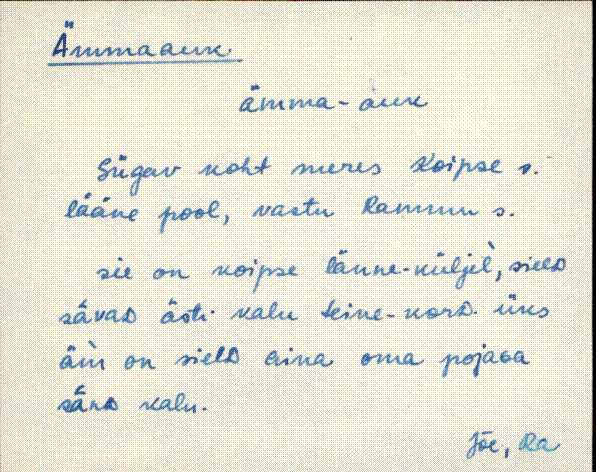 Ämmaauk
ämma-auk
Sügav koht meres Koipse s.
lääne pool, vastu Rammu s.
sie on koipse länne-küljel, sielD
sävaD ästi kalu teine-korD. üks
äm̀ on sielD aina oma pojaGa
sänD kalu.
Jõe, Ra